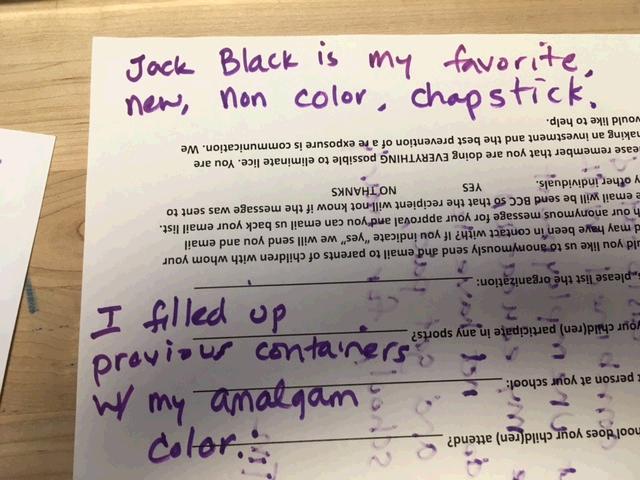 Jack Black is my favorite,
new, non color, chapstick.
I filled up
previous containers
w/ my amalgam
color.
does your child(ren) attend?
person at your school:
your child(ren) participate in any sports?
please list the organization:
you like us to anonymously send and email to parents of children with whom your
may have been in contact with? If you indicate "yes" we will send you and email
our anonymous message for your approval and you can email us back your email list.
email will be send BCC so that the recipient will not know if the message was sent to
other individuals. YES NO THANKS
remember that you are doing EVERYTHING possible to eliminate lice. You are
making an investment and the best prevention of a re exposure is communication. We
would like to help.